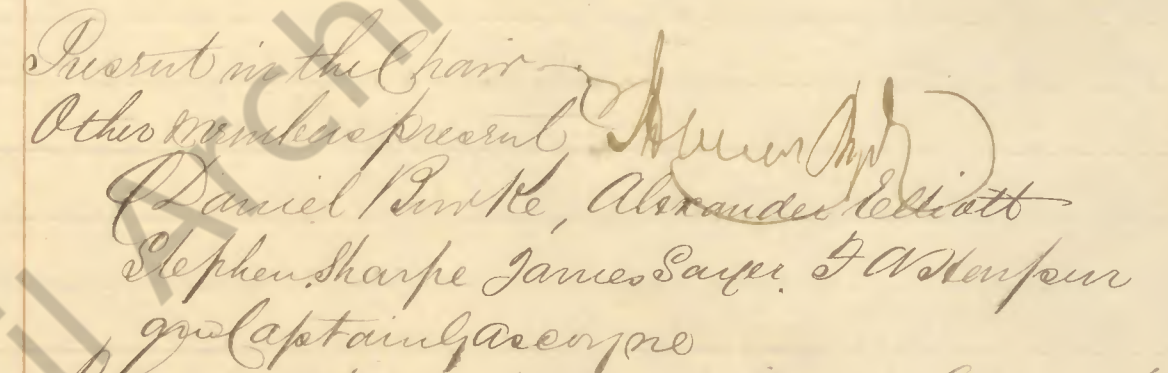 Present in the Chair
Other members present
Daniel Burke, Alexander Elliott
Stephen Sharpe James Sayer. F A
and Captain Gascoyne